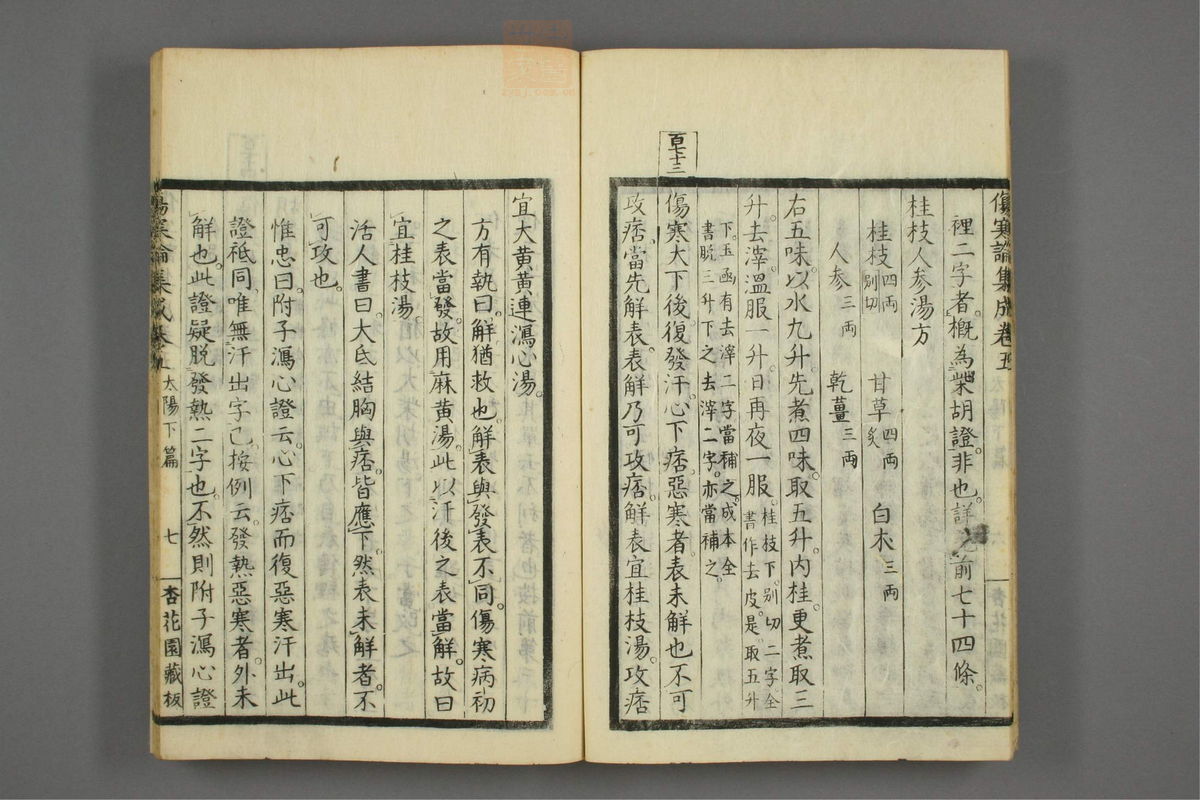 傷寒論集成卷五
裡二字者。概為柴胡證。非也。詳前七十四條。
桂枝人参湯方
桂枝四両別切 甘草四両炙 白朮三両
人参三両 乾薑三両
右五味。以水九升。先煮四味。取五升。内桂更煮取三
升。去滓。温服一升。日再夜一服。桂枝下。別切二字。全
書作去皮。是。取五升
下。玉函有去滓二字。當補之。成本全
書脱三升下之去滓二字。亦當補之。
百七十三
傷寒大下後。復發汗。心下痞。惡寒者。表未解也。不可
攻痞。當先解表。表解乃可攻痞。解表宜桂枝湯。攻痞
宜大黄黄連瀉心湯。
方有執曰。解猶救也。解表與發表不同。傷寒病初
之表當發。故用麻黄湯。此以汗後之表當解。故曰
宜桂枝湯。
活人書曰。大氐結胸與痞。皆應下。然表未解者。不
可攻也。
惟忠曰。附子瀉心證云。心下痞而復惡寒汗出。此
證祗同。唯無汗出字已。按例云。發熱惡寒者。外未
解也。此證疑脱發熱二字也。不然則附子瀉心證
傷寒論集成卷五 太陽下篇 七 杏花園藏板